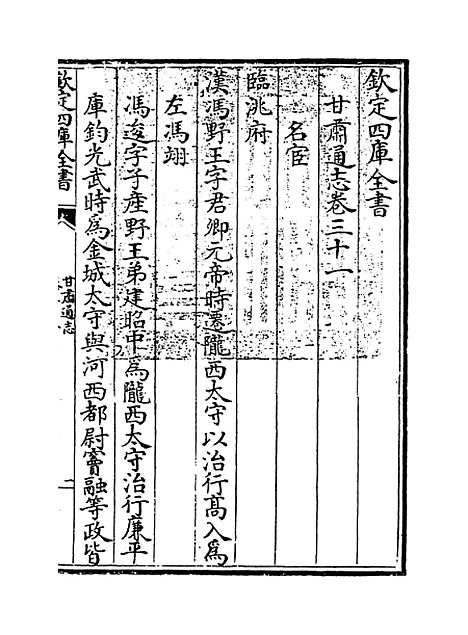 欽定四庫全書
甘肅通志卷三十一
名宦
臨洮府
漢馮野王字君卿元帝時遷隴西太守以治行髙入為
左馮翊
馮逡字子産野王弟建昭中為隴西太守治行廉平
庫鈞光武時為金城太守與河西都尉竇融等政皆
欽定四庫全書
甘肅通志